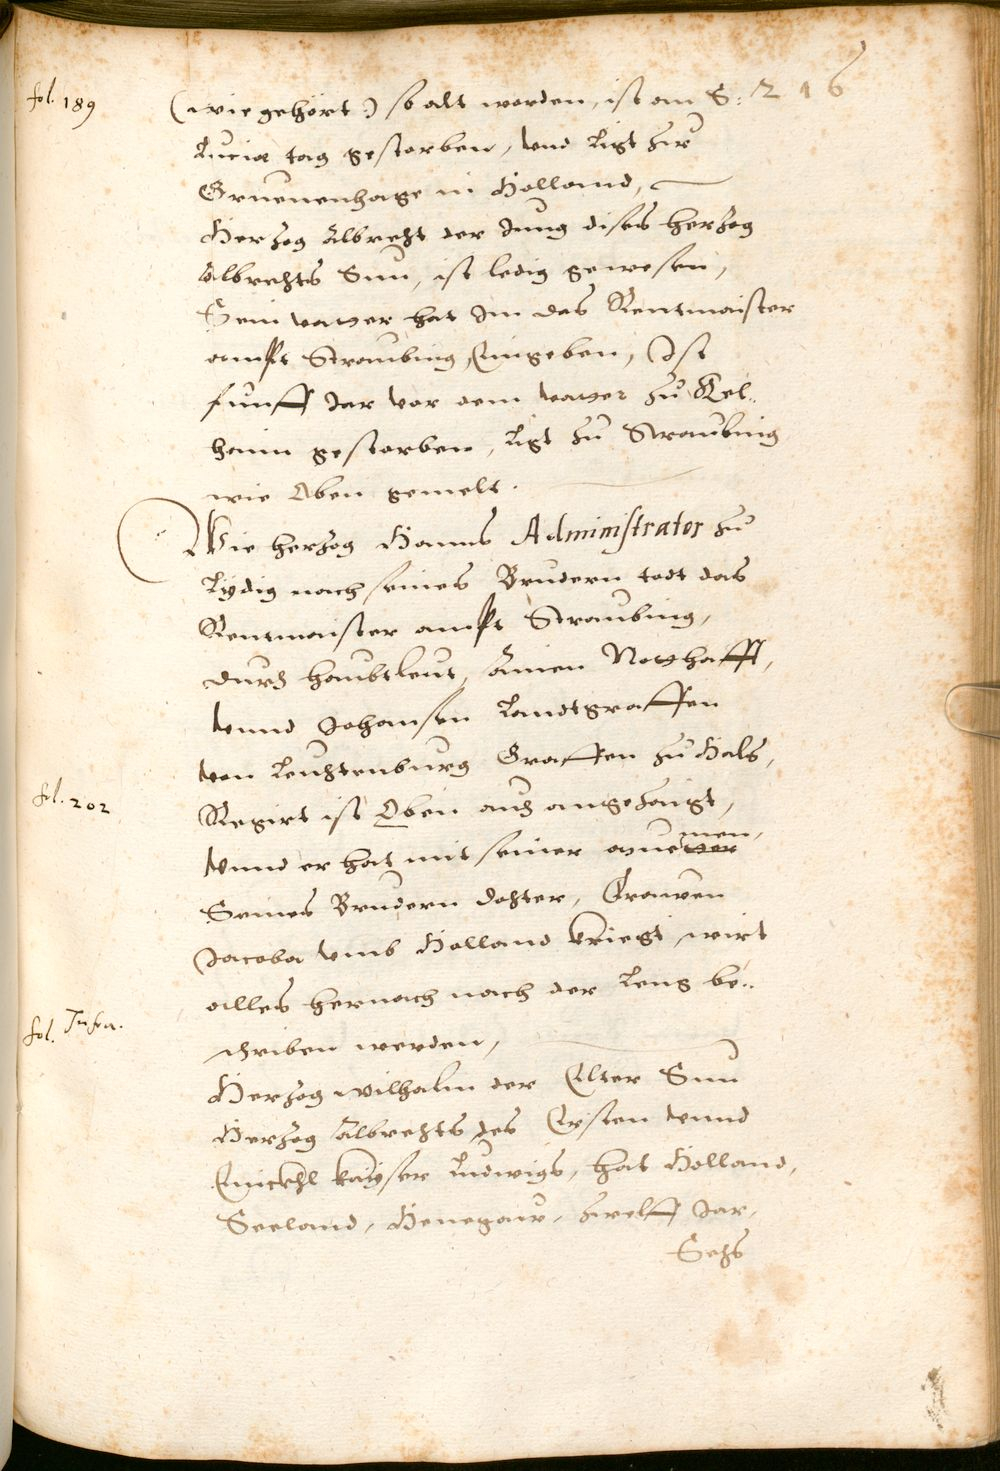 216
fol. 189
(wie gehört) so alt worden, ist am S:
Lucia tag gestorben, vnd ligt zw
Gruenenhage in Holland,
Herzog Albrecht der Jung dises herzog
Albrechts Sun, ist ledig gewesen,
Sein vatter hat Im das Rentmaister
ampt Straubing Eingeben, Ist
funff Jar vor dem vatter zu Kel..
haim gestorben, ligt zu Straubing
wie Oben gemelt.
Wie herzog Hanns Administrator zu
Lÿdig nach seines Brudern todt das
Rentmaister ampt Straubing,
durch haubtleut, Ainen Notthafft,
Vnnd Johansen Landtgraffen
von Leuchtenburg Graffen zu Hals,
fol. 202
Regirt ist Oben auch angezaigt,
Vnnd er hat mit seiner
Seines Brudern dochter, Frawen
Jacoba vmb Holland kriegt, wirt
alles hernach nach der Leng be..
fol. Infra.
schriben werden,
Herzog Wilhalm der Elter Sun
Herzog Albrechts des Ersten vnnd
Enickhl kaÿser Ludwigs, hat Holland,
Seeland, Henegaw, zwelff Jar,
Sechs